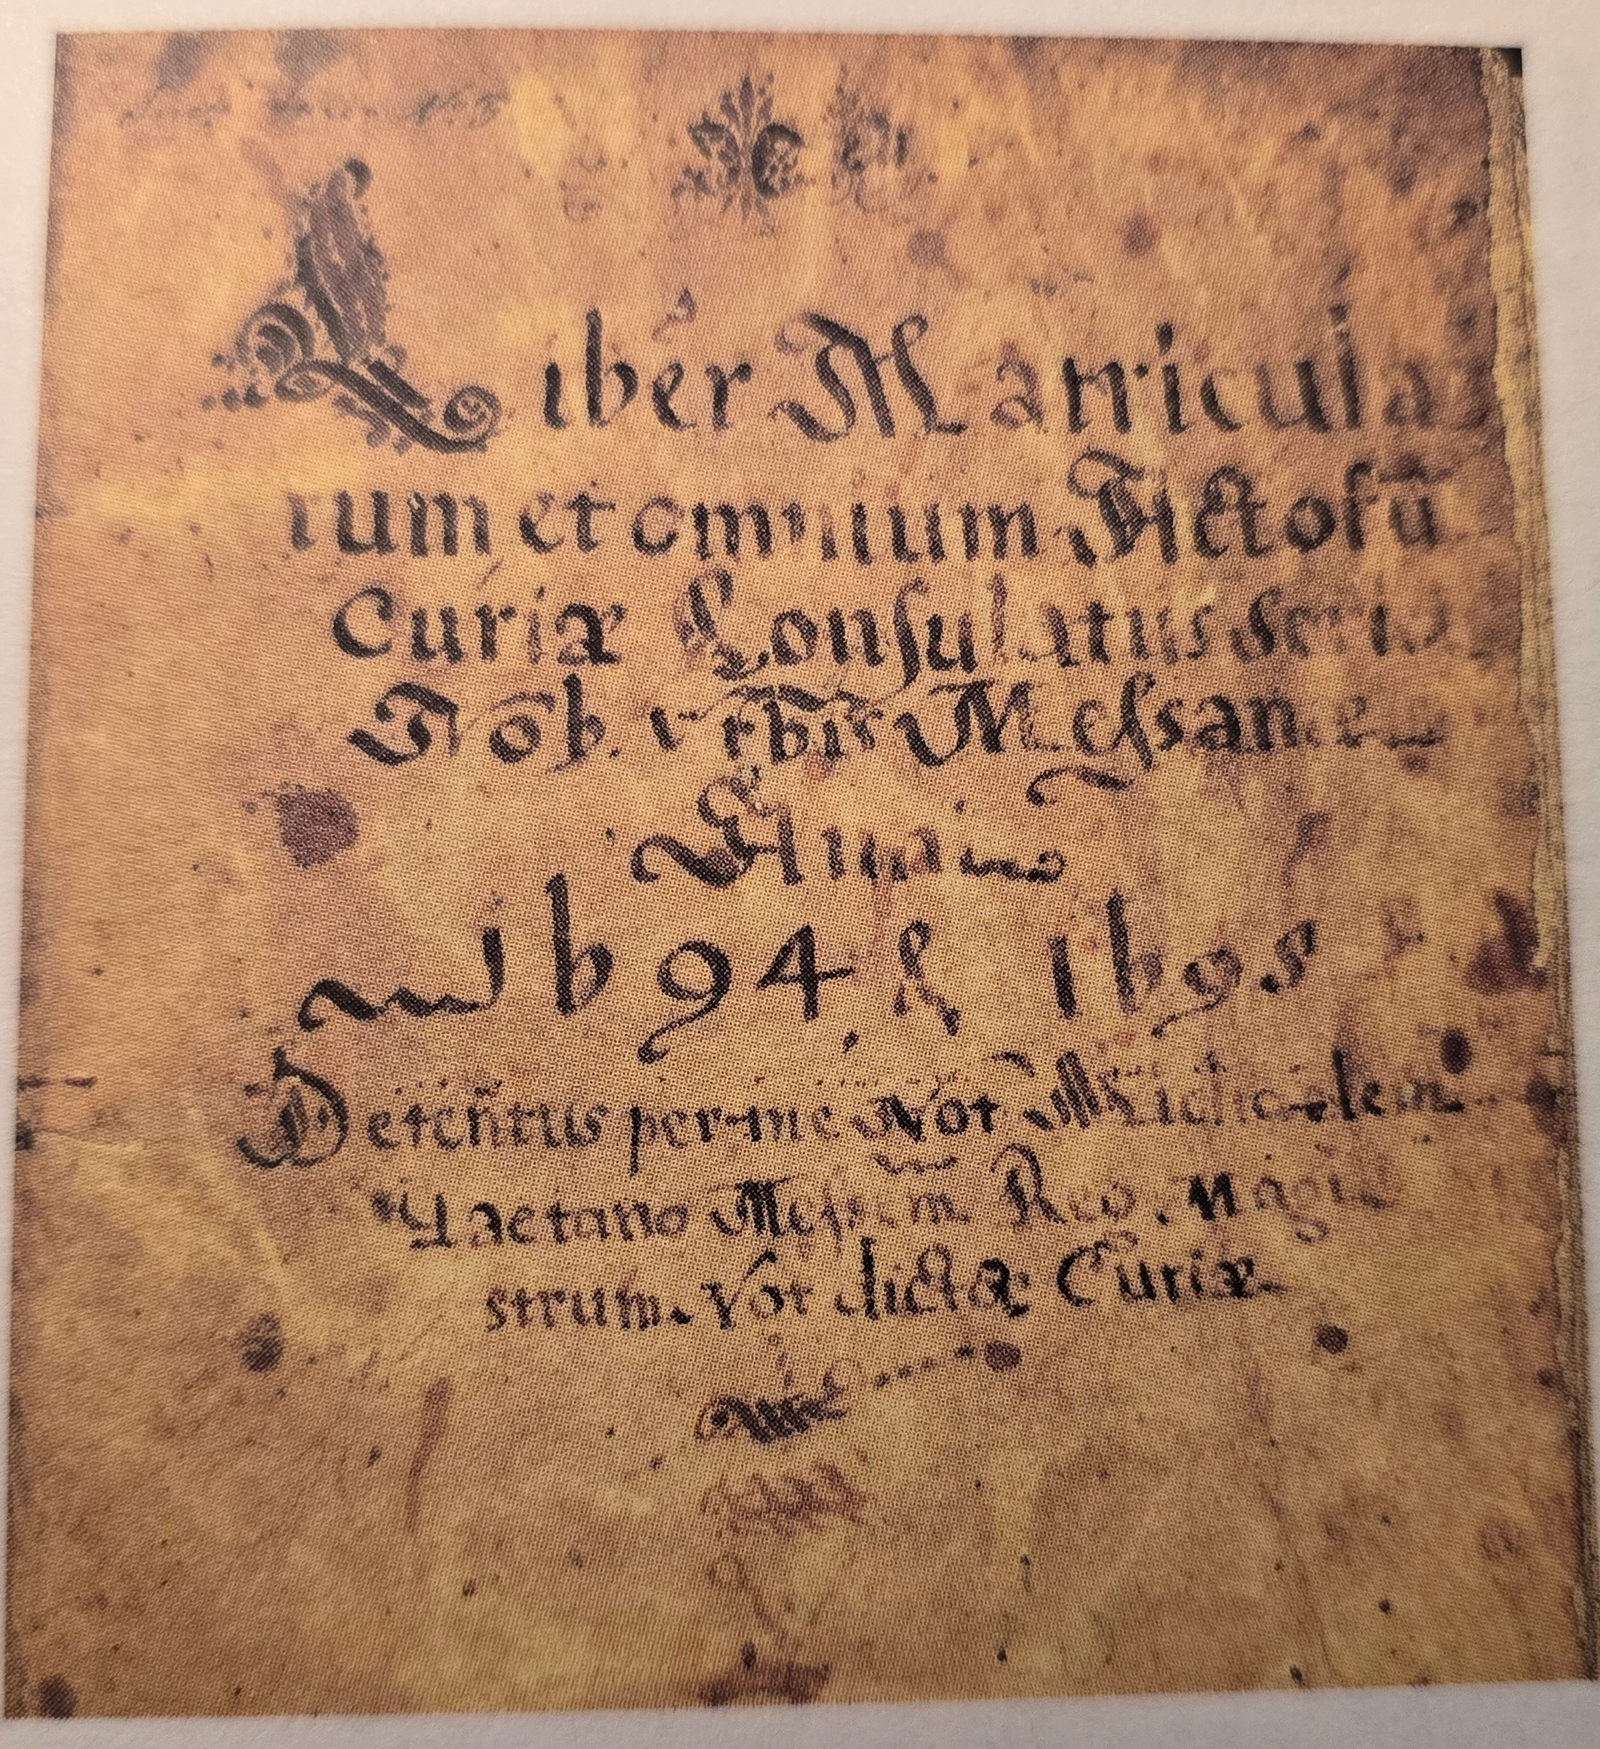 Liber Matricula
rum et omnium Actorū
Curiæ Consulatus
Nob. Urbis Messane
Anno
1694, & 1695
Detentus per me Not Michaelem
Gaetano Reg. Magi
strum Not dictæ Curiæ